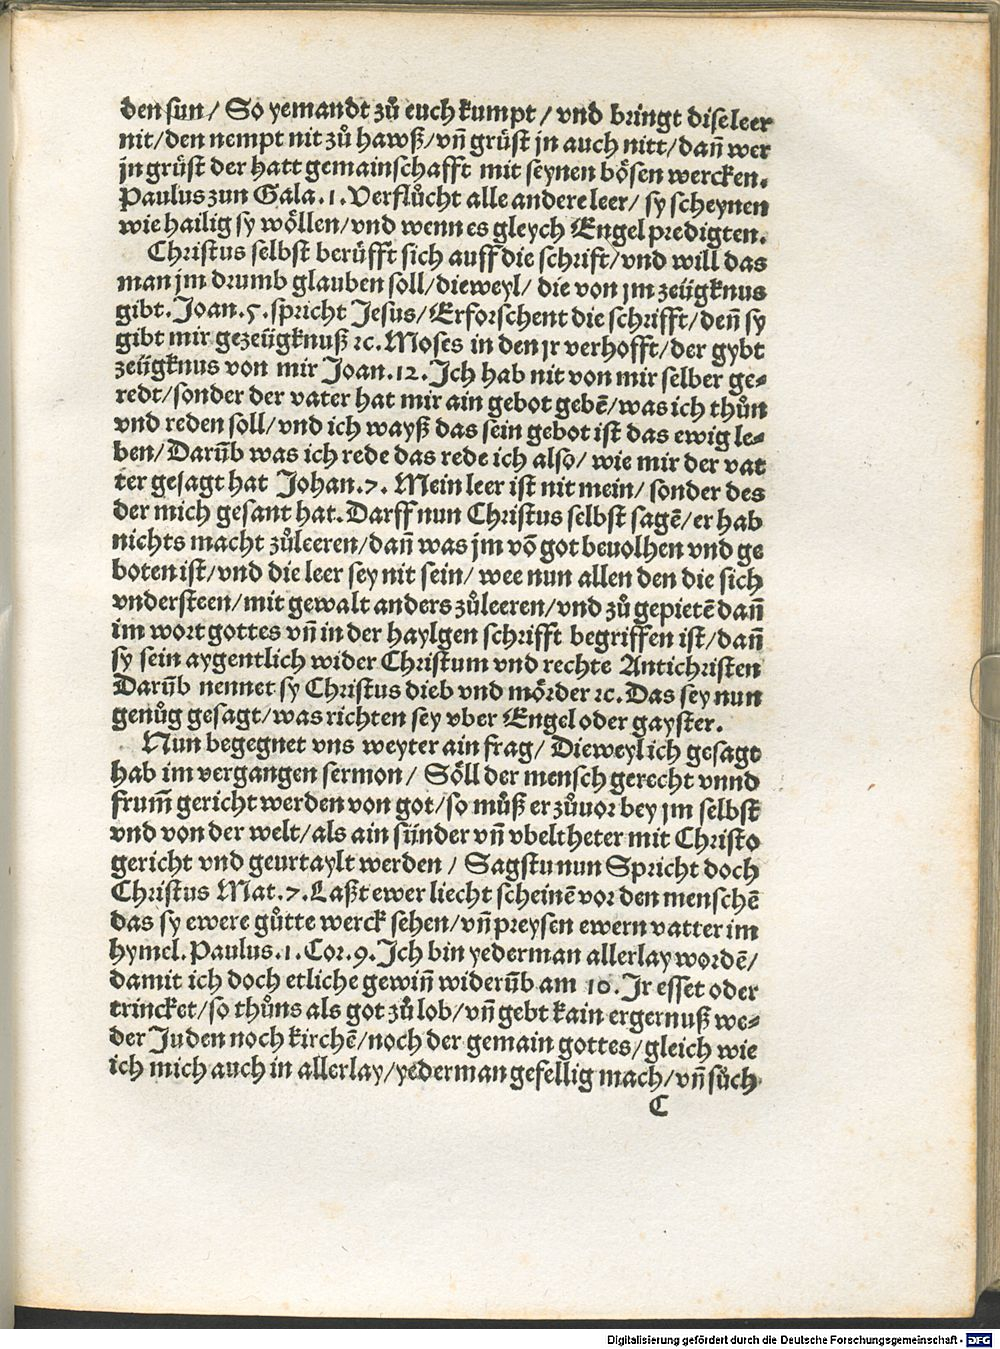 den sun / So yemandt zů euch kumpt / vnd bringt dise leer
nit / den nempt nit zů hawß / vñ grüst jn auch nitt / dañ wer
jn grüst der hatt gemainschafft mit seynen bösen wercken.
Paulus zun Gala. 1. Verflůcht alle andere leer / sy scheynen
wie hailig sy wöllen / vnd wenn es gleych Engel predigten.
Christus selbst berüfft sich auff die schrift / vnd will das
man jm drumb glauben soll / dieweyl / die von jm zeügknus
gibt. Joan. 5. spricht Jesus / Erforschent die schrifft / deñ sy
gibt mir gezeügknuß ꝛc. Moses in den jr verhofft / der gybt
zeügknus von mir Joan. 12. Ich hab nit von mir selber ge⸗
redt / sonder der vater hat mir ain gebot gebē / was ich thůn
vnd reden soll / vnd ich wayß das sein gebot ist das ewig le⸗
ben / Darūb was ich rede das rede ich also / wie mir der vat
ter gesagt hat Johan. 7. Mein leer ist nit mein / sonder des
der mich gesant hat. Darff nun Christus selbst sagē / er hab
nichts macht zůleeren / dañ was jm vō got beuolhen vnd ge
boten ist / vnd die leer sey nit sein / wee nun allen den die sich
vndersteen / mit gewalt anders zůleeren / vnd zů gepietē dañ
im wort gottes vñ in der haylgen schrifft begriffen ist / dañ
sy sein aygentlich wider Christum vnd rechte Antichristen
Darūb nennet sy Christus dieb vnd mörder ꝛc. Das sey nun
genůg gesagt / was richten sey vber Engel oder gayster.
Nun begegnet vns weyter ain frag / Dieweyl ich gesagt
hab im vergangen sermon / Söll der mensch gerecht vnnd
frum̃ gericht werden von got / so můß er zůuor bey jm selbst
vnd von der welt / als ain sünder vñ vbeltheter mit Christo
gericht vnd geurtaylt werden / Sagstu nun Spricht doch
Christus Mat. 7. Laßt ewer liecht scheinē vor den menschē
das sy ewere gůtte werck sehen / vñ preysen ewern vatter im
hymel. Paulus. 1. Cor. 9. Ich bin yederman allerlay wordē /
damit ich doch etliche gewiñ widerūb am 10. Jr esset oder
trincket / so thůns als got zů lob / vñ gebt kain ergernuß we⸗
der Juden noch kirchē / noch der gemain gottes / gleich wie
ich mich auch in allerlay / yederman gefellig mach / vñ sůch
C
Digitalisierung gefördert durch die Deutsche Forschungsgemeinschaft - DFG